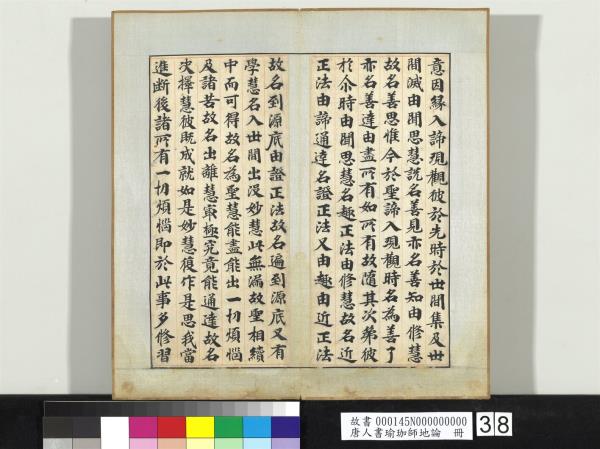 意因緣入諦現觀彼於先時於世間集及世
間滅由聞思慧說名善見亦名善知由修慧
故名善思惟今於聖諦入現觀時名為善了
亦名善達由盡所有如所有故隨其次第彼
於尒時由聞思慧名趣正法由修慧故名近
正法由諦通達名證正法又由趣由近正法
故名到源底由證正法故名遍到源底又有
學慧名入世間出沒妙慧此無漏故聖相續
中而可得故名為聖慧能盡能出一切煩惱
及諸苦故名出離慧窮極究竟能通達故名
決擇慧彼既成就如是妙慧復作是思我當
進斷後諸所有一切煩惱即於此事多修習
故書 000145N000000000
唐人書瑜珈師地論 冊
38